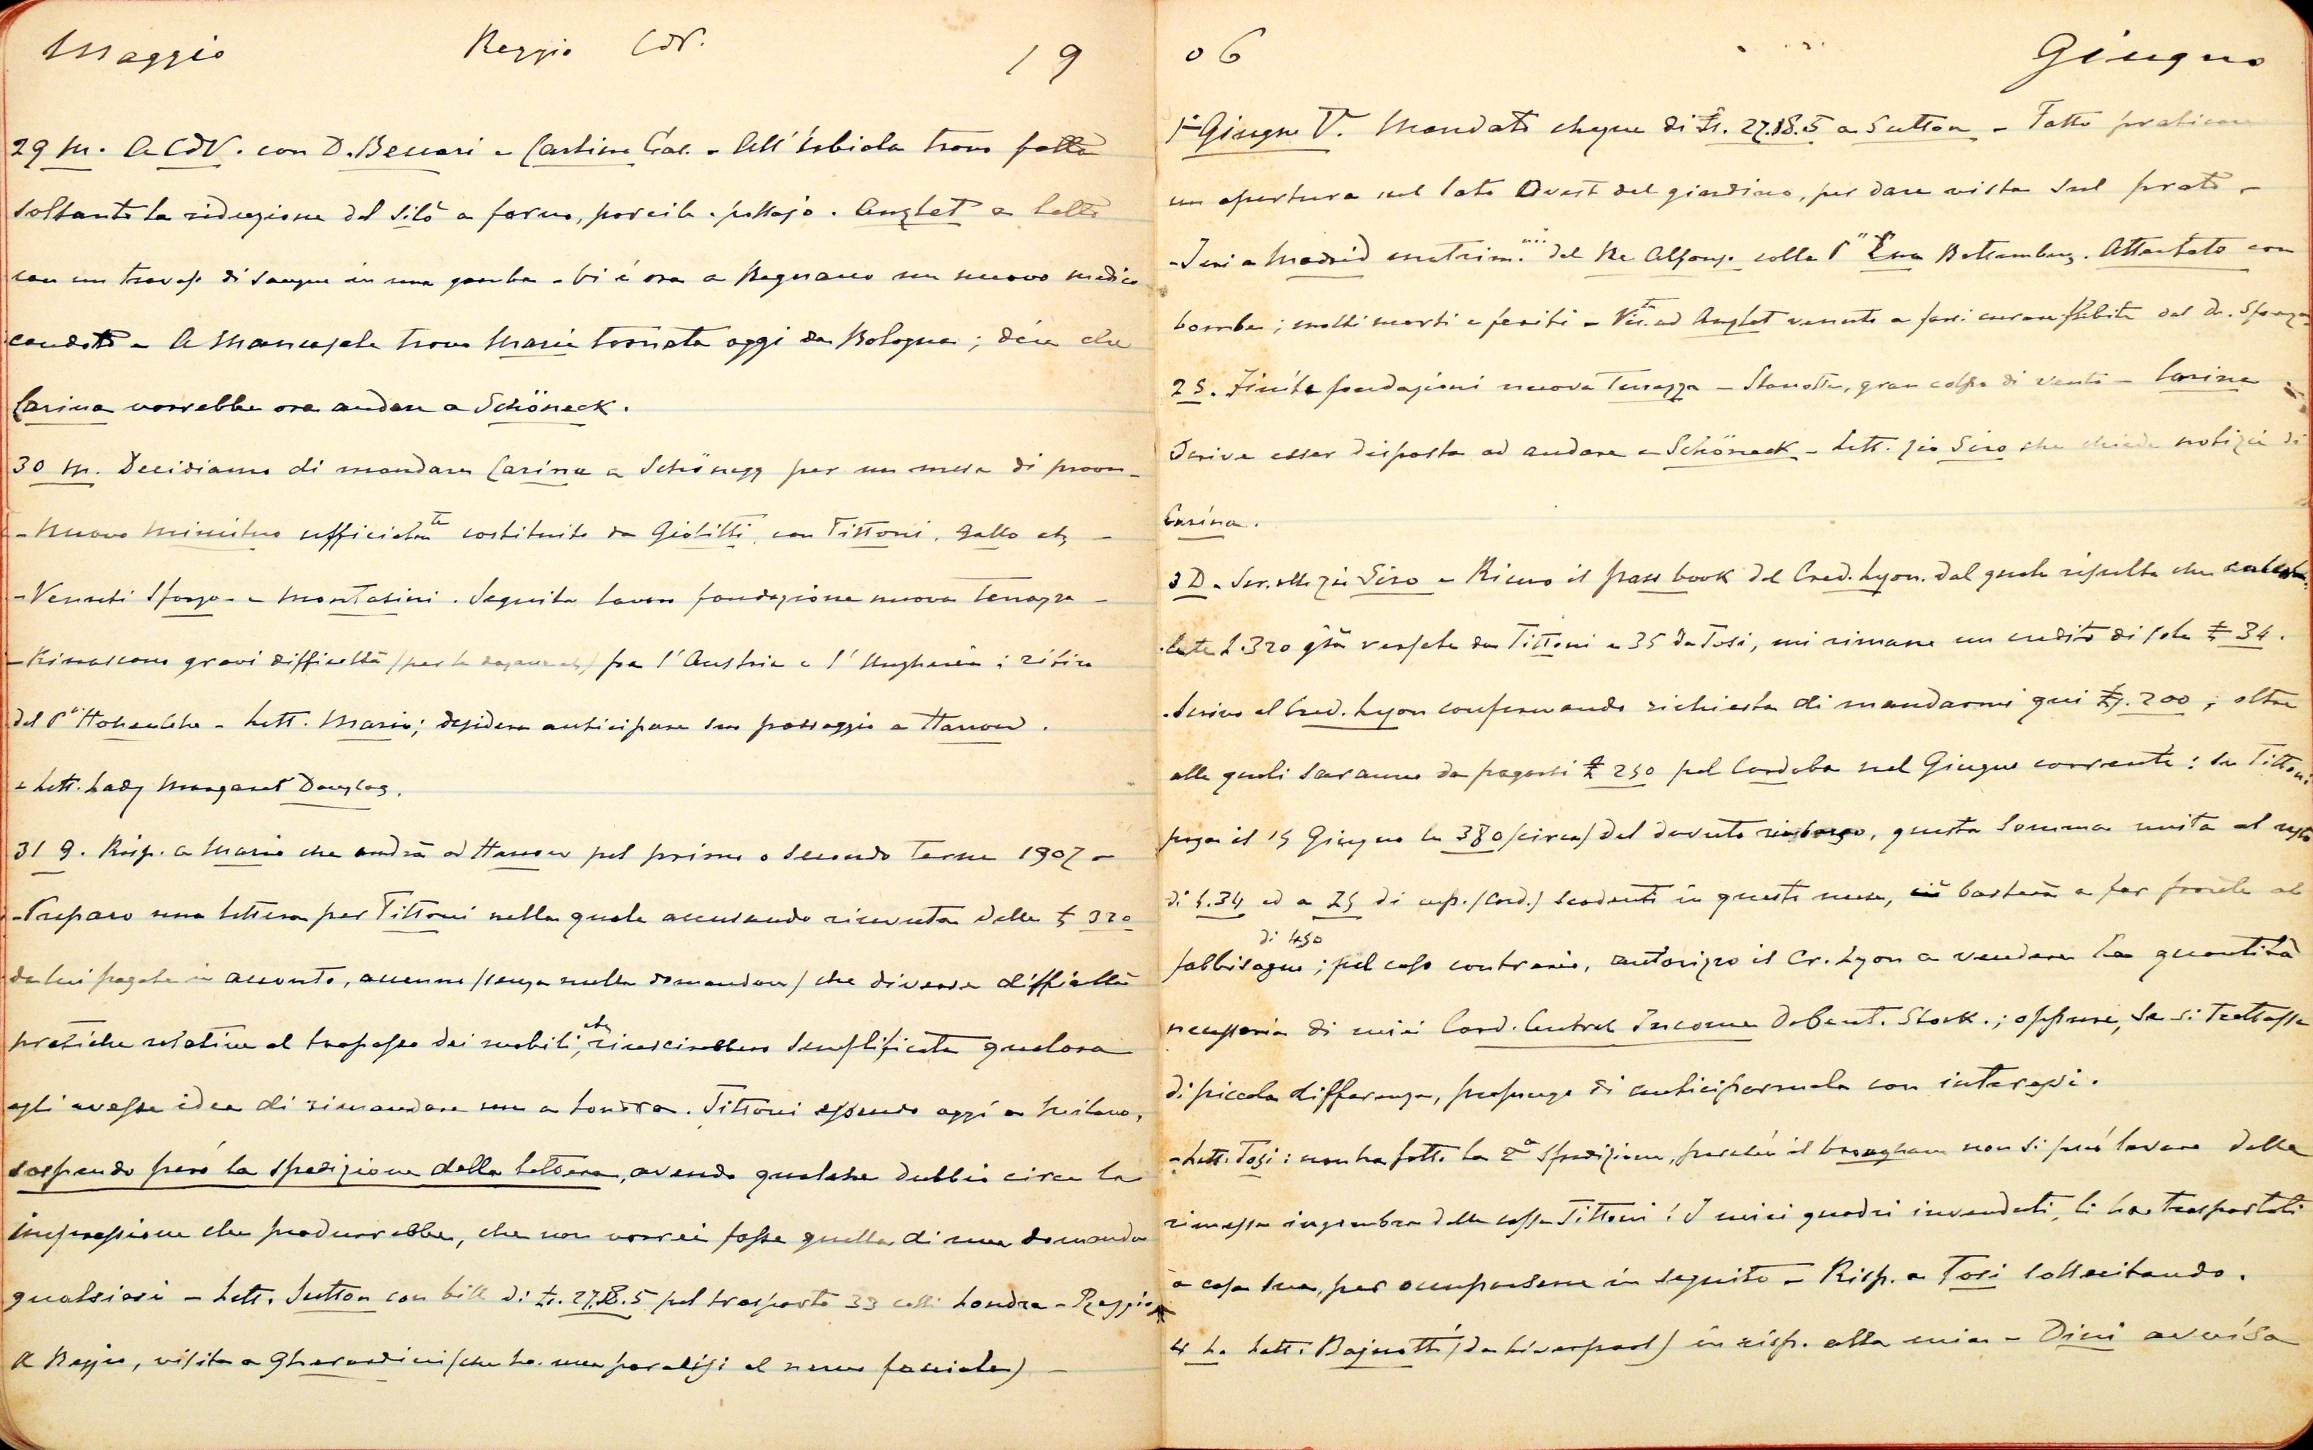 Maggio Reggio CdV. 19
29 M. A CdV. con D. Beccari e Cartino Gae. - All'Orbiola trovo fatta
soltanto la riduzione del silò a forno, porcile, pollajo. Anglet a letto
con un travaso di sangue in una gamba - Vi è ora a Bagnano un nuovo medico
condotto - A Mancasale trovo Maria tornata oggi da Bologna; dice che
Carina vorrebbe ora andare a Schöneck.
30 M. Decidiamo di mandare Carina a Schönegg per un mese di prova -
- Nuovo Ministero ufficialm te costituito da Giolitti, con Tittoni, Gallo etc -
- Venuti Sforza - e Montasini. Seguita lavoro fondazione nuova Terrazza -
- Rinascono gravi difficoltà (per le dogane etc) fra l'Austria e l'Ungheria; ritiro
del P. Hohenlohe - Lett. Mario; desidera anticipare suo passaggio a Harrow.
e Lett. Lady Margaret Douglas.
31 G. Risp. a Mario che andrà ad Harrow pel primo o secondo Term 1907 -
- Preparo una lettera per Tittoni nella quale accusando ricevuta delle £ 320
da lui pagate in acconto, accenno (senza nulla domandare) che diverse difficoltà
pratiche relative al trapasso dei mobili, etc, riuscirebbero semplificate qualora
egli avesse idea di rimandare me a Londra. Tittoni essendo oggi a Milano,
sospendo però la spedizione della lettera, avendo qualche dubbio circa la
impressione che produrrebbe, che non vorrei fosse quella di una domanda
qualsiasi - Lett. Sutton con bill di £. 27.18.5 pel trasporto 33 colli Londra - Reggio
A Reggio, visita a Gherardini (che ha una paralisi al nervo facciale) -
06 Giugno
1° Giugno V. Mandato cheque di £. 27.18.5 a Sutton - Fatto praticare
un apertura nel lato Ovest del giardino, per dare vista sul prato -
- Ieri a Madrid matrim. nio del Re Alfonso colla P. Ena Battemberg. Attentato con
bombe; molti morti e feriti - Vis. ta ad Anglet venuto a farsi curare flebite dal Dr. Sforza
2 S. Finite fondazioni nuova Terrazza - Stanotte, gran colpo di vento - Carina
scrive esser disposta ad andare a Schöneck - Lett. zio Siro che chiede notizie di
Carina.
3 D. Scr. allo zio Siro - Ricevo il pass book del Cred. Lyon. dal quale risulta che
£. 320 già versate da Tittoni e 35 da Tosi, mi rimane un credito di sole £ 34.
- Scrivo al Cred. Lyon confermando richiesta di mandarmi qui £. 200; oltre
alle quali saranno da pagarsi £ 250 pel Cordoba nel Giugno corrente: se Tittoni
paga il 15 Giugno le 380 (circa) del dovuto rimborso, questa somma unita al resto
di £. 34 ed a 25 di cup. (Cord.) scadenti in questo mese, basterà a far fronte al
fabbisogno di 450; pel caso contrario, autorizzo il Cr. Lyon a vendere la quantità
necessaria di miei Cord. Central Income Debent. Stock.; oppure, se si trattasse
di piccola differenza, propongo di anticiparmela con interessi.
- Lett. Tosi: non ha fatto la 2a spedizione, perchè il brougham non si può levare dalla
rimessa ingombra delle casse Tittoni! I miei quadri invenduti, li ha trasportati
a casa sua, per occuparsene in seguito - Risp. a Tosi sollecitando.
4 L. Lett. Bajnotti (da Liverpool) in risp. alla mia - Dini avvisa